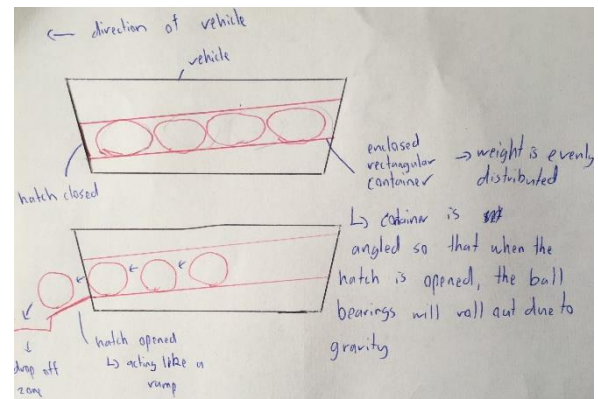 ← direction of vehicle
vehicle
hatch closed
enclosed
rectangular
container
→ weight is evenly
distributed
↳ container is
angled so that when the
hatch is opened, the ball
bearings will roll out due to
gravity
hatch opened
↳ acting like a
ramp
drop off
zone